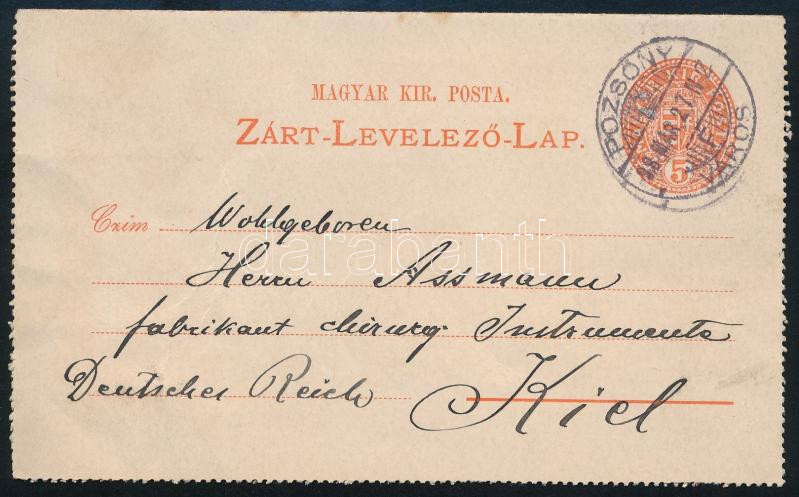 MAGYAR KIR. POSTA.
ZÁRT-LEVELEZŐ-LAP.
POZSONY
VÁROS
5
Czim Wohlgeboren
darabanth
Herrn Assmann
fabrikant chirurg Instrumente
Deutsches Reich Kiel